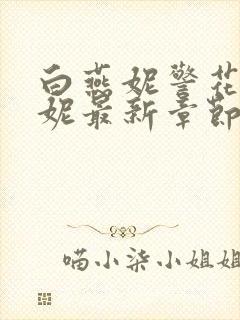 白燕妮警花
妮最新章節
喵小柒小姐姐